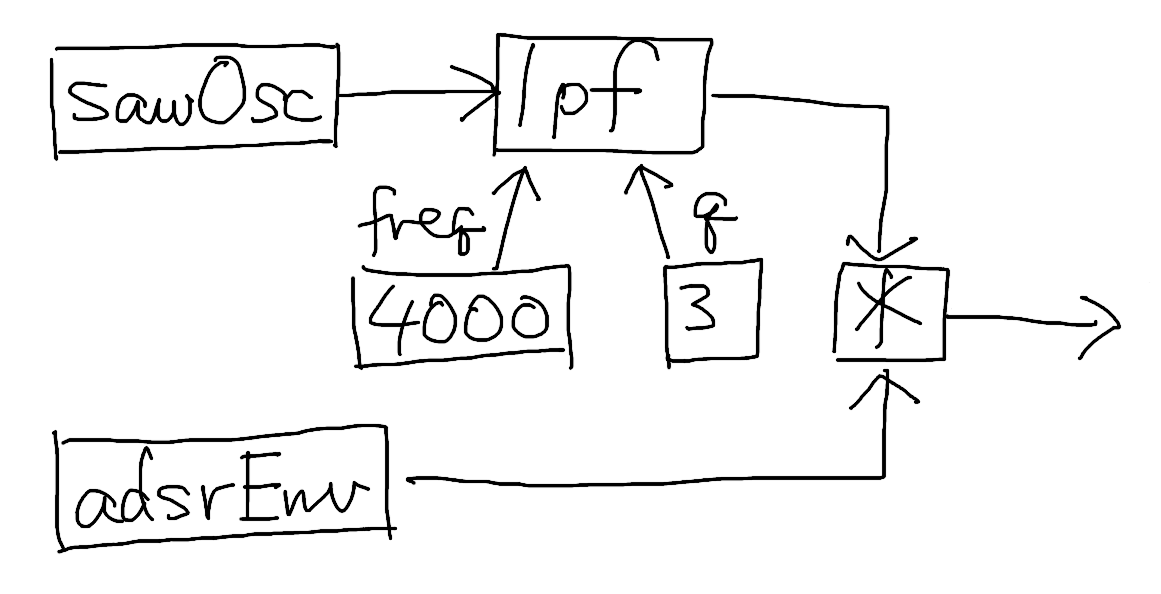 sawOsc
lpf
freq
q
4000
3
*
adsrEnv